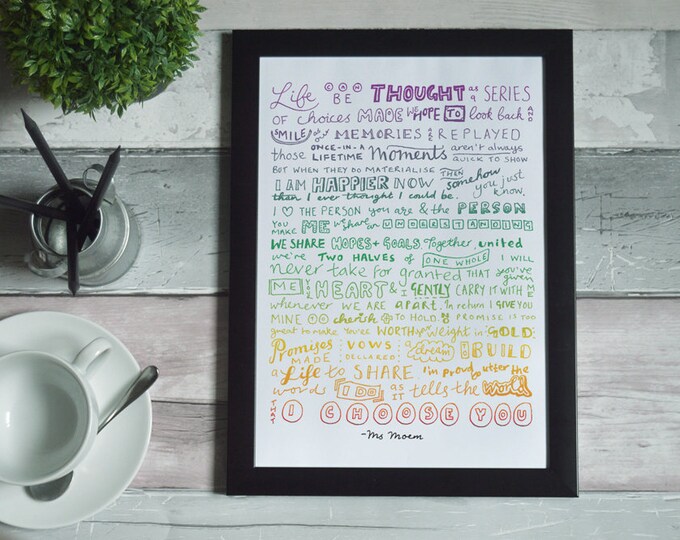 Life CAN BE THOUGHT as a SERIES
OF choices MADE WE HOPE TO look back AND
SMILE at our MEMORIES are REPLAYED
those ONCE-IN-A LIFETIME Moments aren't always QUICK TO SHOW
BUT WHEN THEY DO MATERIALISE THEN somehow you just know.
I AM HAPPIER NOW than I ever thought I could be.
I ♡ THE PERSON you are & the PERSON
YOU MAKE ME We share an UNDERSTANDING
WE SHARE HOPES + GOALS Together, united
we're TWO HALVES of ONE WHOLE I WILL
never take for granted THAT you've given
ME HEART & I GENTLY CARRY IT WITH ME
whenever WE ARE apart. In return I GIVE YOU
MINE TO cherish TO HOLD. NO PROMISE IS TOO
great to make You're WORTH your Weight in GOLD.
Promises MADE VOWS DECLARED a dream TO BUILD
a Life to SHARE I'm proud to utter the
words I DO as IT tells the World
THAT I CHOOSE YOU
-Ms Moem